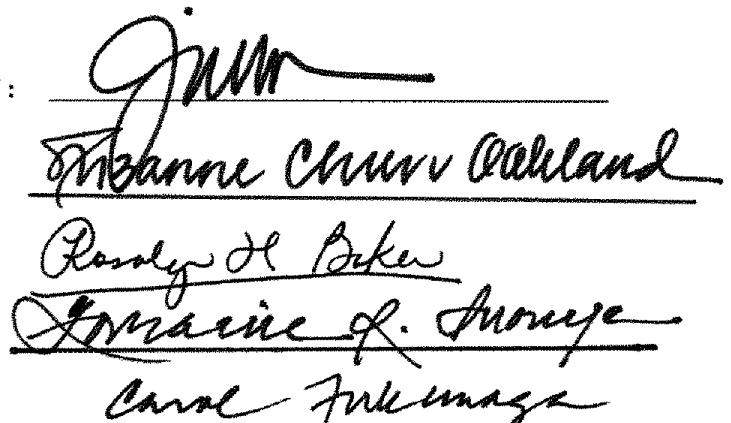 :
Suzanne Chun Oakland
Rosalyn H Baker
Lorraine R. Inouye
Carol Fukunaga